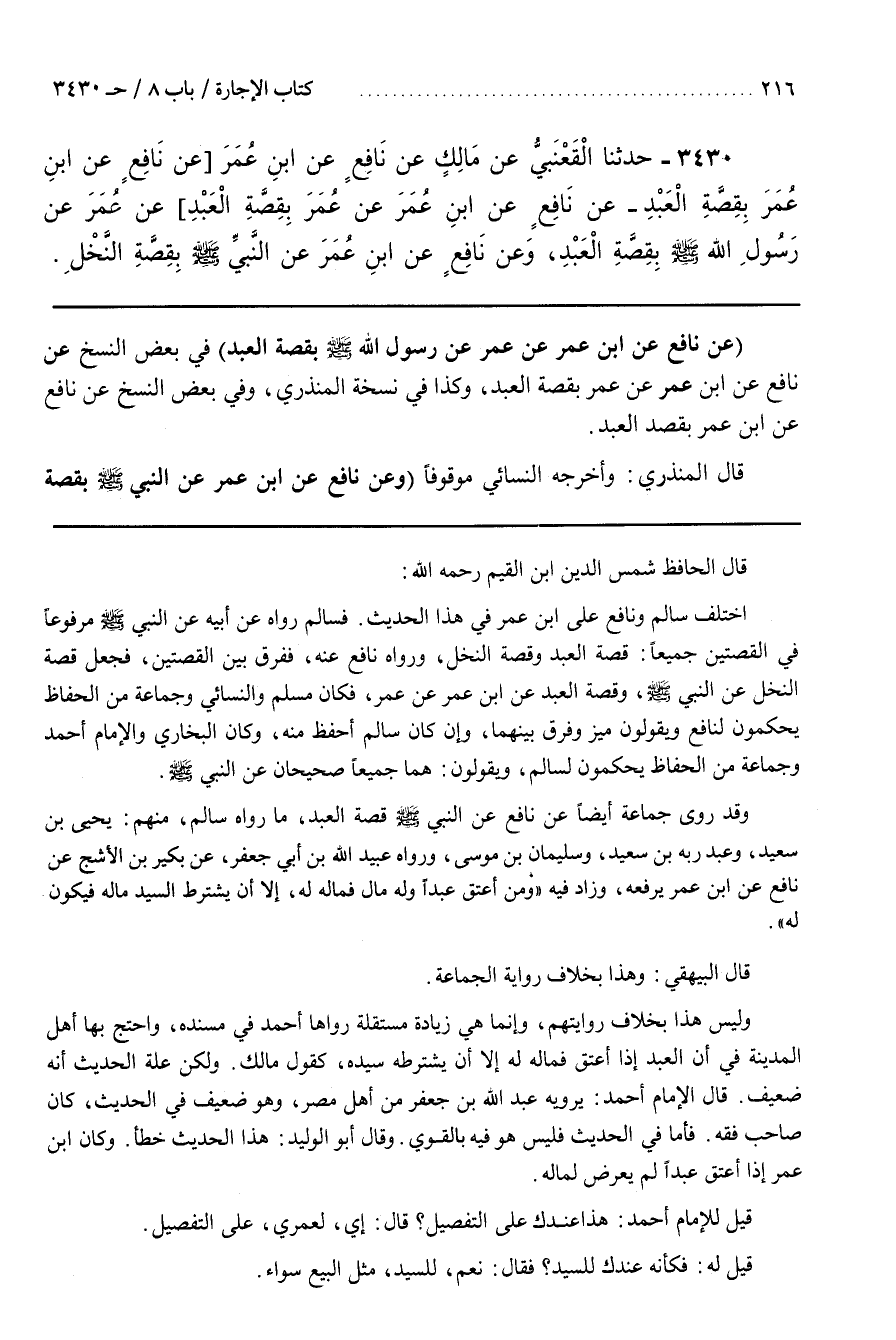 ٢١٦ ............................................ كتاب الإجارة / باب ٨ / حـ ٣٤٣٠
٣٤٣٠ ـ حدثنا الْقَعْنَبيُّ عن مَالِكٍ عن نَافِعٍ عن ابنِ عُمَرَ [عن نَافِعٍ عن ابنِ
عُمَرَ بِقِصَّةِ الْعَبْدِ ـ عن نَافِعٍ عن ابنِ عُمَرَ عن عُمَرَ بِقِصَّةِ الْعَبْدِ] عن عُمَرَ عن
رَسُولِ الله ﷺ بِقِصَّةِ الْعَبْدِ، وَعن نَافِعٍ عن ابنِ عُمَرَ عن النَّبيِّ ﷺ بِقِصَّةِ النَّخْلِ.
(عن نافع عن ابن عمر عن عمر عن رسول الله ﷺ بقصة العبد) في بعض النسخ عن
نافع عن ابن عمر عن عمر بقصة العبد، وكذا في نسخة المنذري، وفي بعض النسخ عن نافع
عن ابن عمر بقصد العبد.
قال المنذري: وأخرجه النسائي موقوفاً (وعن نافع عن ابن عمر عن النبي ﷺ بقصة
قال الحافظ شمس الدين ابن القيم رحمه الله:
اختلف سالم ونافع على ابن عمر في هذا الحديث. فسالم رواه عن أبيه عن النبي ﷺ مرفوعاً
في القصتين جميعاً: قصة العبد وقصة النخل، ورواه نافع عنه، ففرق بين القصتين، فجعل قصة
النخل عن النبي ﷺ، وقصة العبد عن ابن عمر عن عمر، فكان مسلم والنسائي وجماعة من الحفاظ
يحكمون لنافع ويقولون ميز وفرق بينهما، وإن كان سالم أحفظ منه، وكان البخاري والإمام أحمد
وجماعة من الحفاظ يحكمون لسالم، ويقولون: هما جميعاً صحيحان عن النبي ﷺ.
وقد روى جماعة أيضاً عن نافع عن النبي ﷺ قصة العبد، ما رواه سالم، منهم: يحيى بن
سعيد، وعبد ربه بن سعيد، وسليمان بن موسى، ورواه عبيد الله بن أبي جعفر، عن بكير بن الأشج عن
نافع عن ابن عمر يرفعه، وزاد فيه «ومن أعتق عبداً وله مال فماله له، إلا أن يشترط السيد ماله فيكون
له».
قال البيهقي: وهذا بخلاف رواية الجماعة.
وليس هذا بخلاف روايتهم، وإنما هي زيادة مستقلة رواها أحمد في مسنده، واحتج بها أهل
المدينة في أن العبد إذا أعتق فماله له إلا أن يشترطه سيده، كقول مالك. ولكن علة الحديث أنه
ضعيف. قال الإمام أحمد: يرويه عبد الله بن جعفر من أهل مصر، وهو ضعيف في الحديث، كان
صاحب فقه. فأما في الحديث فليس هو فيه بالقوي. وقال أبو الوليد: هذا الحديث خطأ. وكان ابن
عمر إذا أعتق عبداً لم يعرض لماله.
قيل للإمام أحمد: هذا عندك على التفصيل؟ قال: إي، لعمري، على التفصيل.
قيل له: فكأنه عندك للسيد؟ فقال: نعم، للسيد، مثل البيع سواء.